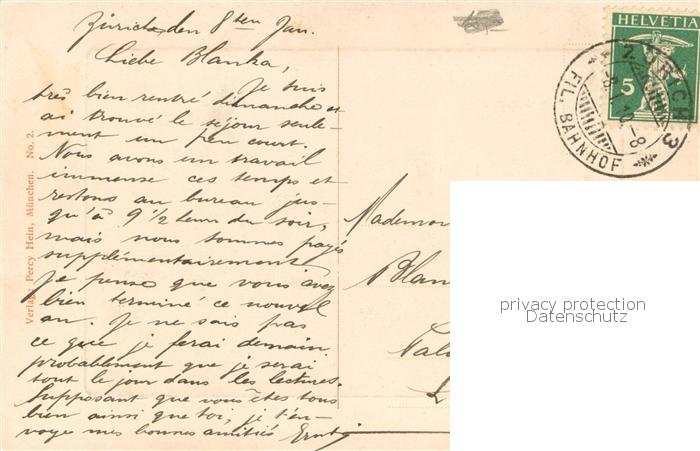 Zürich den 8ten Jan.
Liebe Blanka,
Je suis
très bien rentré dimanche et
ai trouvé le séjour seule-
ment un peu court.
Nous avons un travail
immense ces temps et
restons au bureau jus-
qu'à 9 1/2 heurs du soir,
mais nous sommes payés
supplémentairement
Je pense que vous avez
bien terminé ce nouvel
an. Je ne sais pas
ce que je ferai demain
probablement que je serai
tout le jour dans les lectures.
Supposant que vous êtes tous
bien ainsi que toi, je t'en-
voye mes bonnes amitiés Ernst
Mademoi
Blan
Verlag: Percy Hein, München. No. 2.
HELVETIA
5
ZÜRICH 3
FIL. BAHNHOF
privacy protection
Datenschutz